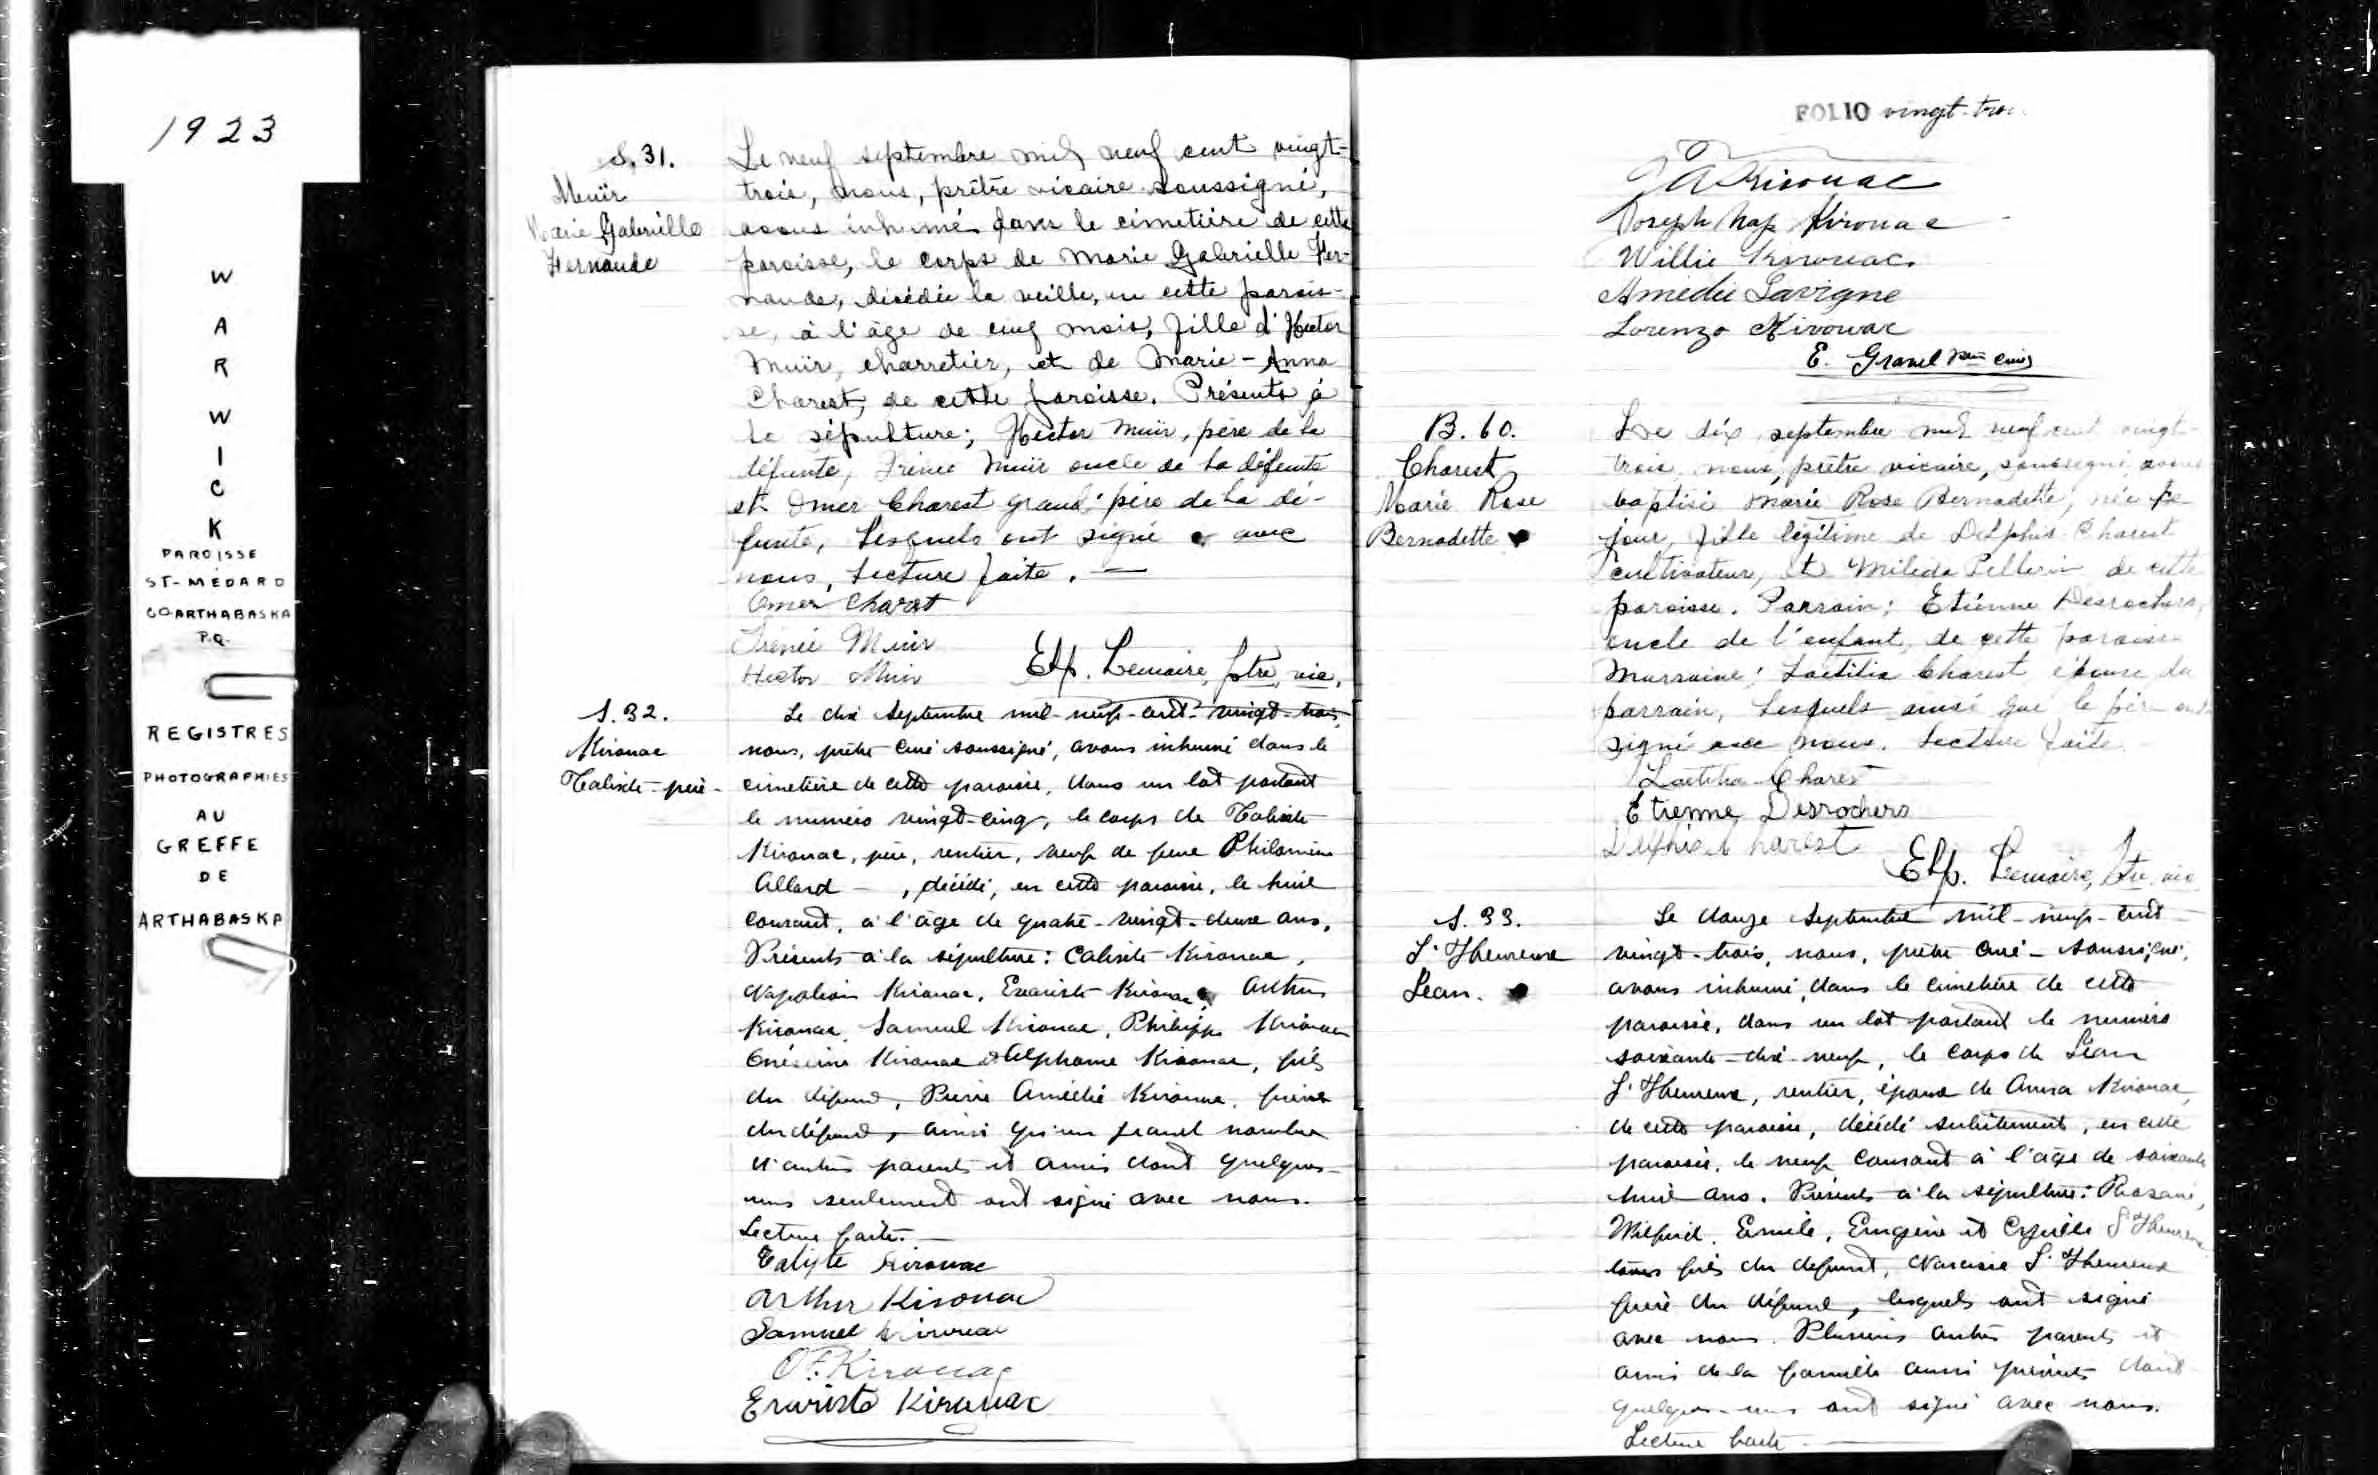 1923
W
A
R
W
I
C
K
PAROISSE
ST-MÉDARD
CO ARTHABASKA
P.Q.
REGISTRES
PHOTOGRAPHIES
AU
GREFFE
DE
ARTHABASKA
S. 31.
Muir
Marie Gabrielle
Fernande
Le neuf septembre mil neuf cent vingt-
trois, nous, prêtre vicaire soussigné,
avons inhumé dans le cimetière de cette
paroisse, le corps de Marie Gabrielle Fer-
nande, décédée la veille, en cette parois-
se, à l'âge de cinq mois, fille d'Hector
Muir, charretier, et de Marie-Anna
Charest, de cette paroisse. Présents à
la sépulture; Hector Muir, père de la
défunte, Irénée Muir oncle de la défunte
et Omer Charest grand-père de la dé-
funte, lesquels ont signé avec
nous, lecture faite. —
Omer Charest
Irenée Muir
Hector Muir
Elp. Lemaire, ptre, vic,
S. 32.
Kirouac
Calixte - père -
Le dix septembre mil-neuf-cent-vingt-trois,
nous, prêtre curé soussigné, avons inhumé dans le
cimetière de cette paroisse, dans un lot portant
le numéro vingt-cinq, le corps de Calixte
Kirouac, père, rentier, veuf de feue Philomène
Allard - , décédé, en cette paroisse, le huit
courant, à l'âge de quatre-vingt-deux ans.
Présents à la sépulture: Calixte Kirouac,
Napoléon Kirouac, Evariste Kirouac, Arthur
Kirouac, Samuel Kirouac, Philippe Kirouac
Onésime Kirouac et Alphonse Kirouac, fils
du défunt, Pierre Amédée Kirouac, frère
du défunt, ainsi qu'un grand nombre
d'autres parents et amis dont quelques-
uns seulement ont signé avec nous.
Lecture faite. —
Calixte Kirouac
Arthur Kirouac
Samuel Kirouac
O. Kirouac
Evariste Kirouac
FOLIO vingt-trois
Kirouac
Joseph Nap Kirouac
Willie Kirouac
Amedée Lavigne
Lorenzo Kirouac
E. Gravel ptre curé
B. 60.
Charest
Marie Rose
Bernadette
Le dix septembre mil neuf cent vingt-
trois, nous, prêtre vicaire, soussigné avons
baptisé Marie Rose Bernadette, née ce
jour, fille légitime de Delphis Charest
cultivateur, et Mélida Pellerin de cette
paroisse. Parrain; Etienne Desrochers,
oncle de l'enfant, de cette paroisse
Marraine; Laetitia Charest, épouse du
parrain, lesquels ainsi que le père ont
signé avec nous. Lecture faite.
Laetitia Charest
Etienne Desrochers
Delphis Charest
Elp. Lemaire, ptre, vic
S. 33.
L'Heureux
Léan.
Le douze septembre mil-neuf-cent
vingt-trois, nous, prêtre curé-soussigné,
avons inhumé, dans le cimetière de cette
paroisse, dans un lot portant le numéro
soixante-dix-neuf, le corps de Léan
L'Heureux, rentier, époux de Anna Kirouac,
de cette paroisse, décédé subitement, en cette
paroisse, le neuf courant à l'âge de soixante
huit ans. Présents à la sépulture:
Wilfrid, Emile, Eugène et Cyrille L'Heureux
tous fils du défunt, Narcisse L'Heureux
frère du défunt, lesquels ont signé
avec nous. Plusieurs autres parents et
amis de la famille aussi présents dont
quelques-uns ont signé avec nous.
Lecture faite. —